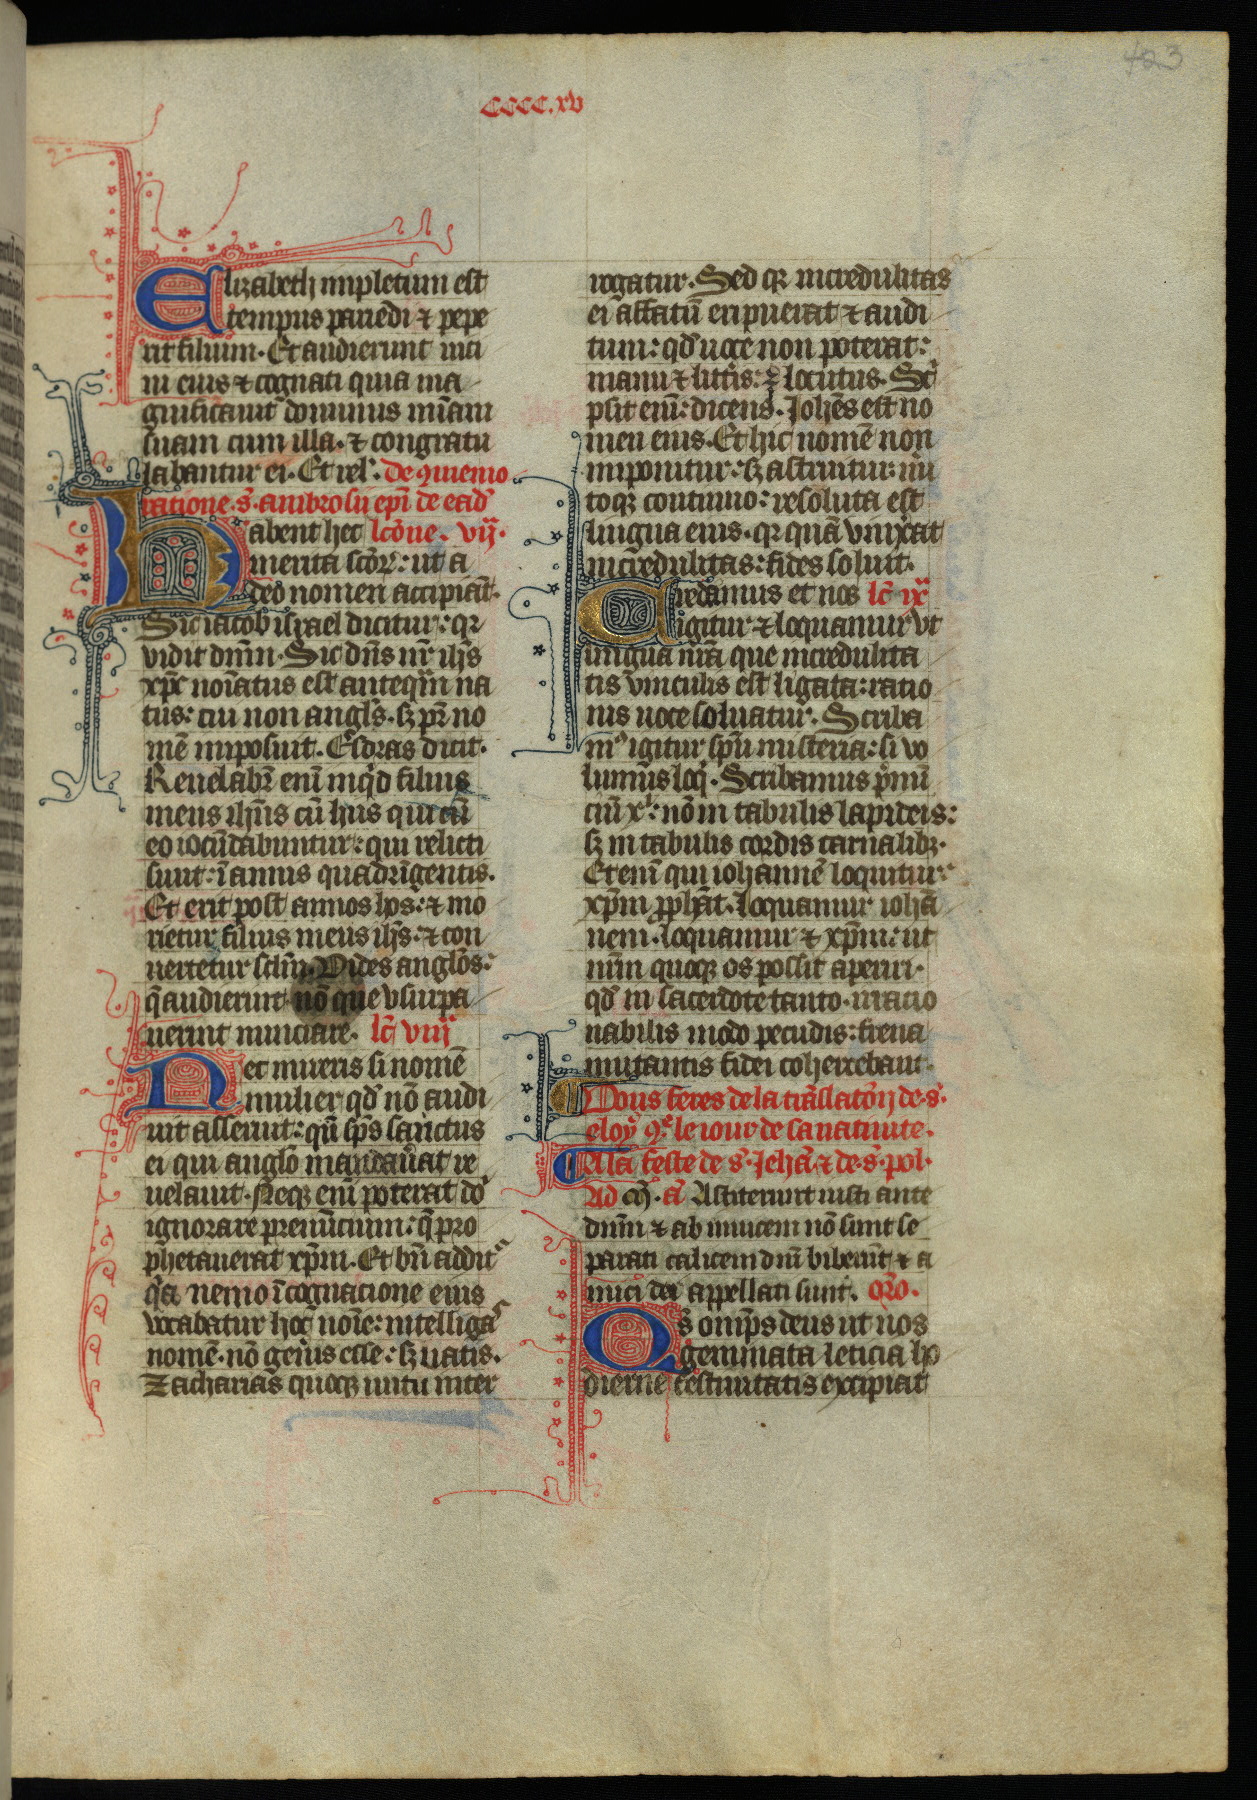 403
CCCC.xv
Elizabeth impletum est
tempus pariendi ⁊ pepe
rit filium. Et audierunt uici
ni eius ⁊ cognati quia ma
gnificauit dominus mīam
suam cum illa. ⁊ congratu
labantur ei. Et rel'. De ꝯmemo
ratione. s. ambrosii epī de ead'
Habent hec lcōne. vij.
merita scōꝝ: ut a
deo nomen accipiāt.
Sic iacob israel dicitur: qr
vidit dnm̄. Sic dn̄s nr̄ ih̄s
xp̄c noīatus est anteq̄m na
tus: cui non angl's. sꝫ pr̄ no
mē imposuit. Esdras dicit.
Reuelabr̄ enī inq̄d filius
meus ih̄us cū hiis qui cū
eo iocūdabuntur: qui relicti
sunt: ī annis quadrīgentis.
Et erit post annos hos: ⁊ mo
rietur filius meus ih̄s: ⁊ con
uertetur sclm̄. Vides anglōs:
q̄ audierint nō que vsurpa
uerint nunciare. lc̄ viij
Nec mireris si nomē
mulier qd' nō audi
uit asseruit: qn̄ sp̄s sanctus
ei qui anglō mandau̅at re
uelauit. Neqꝫ enī poterat dō
ignorare prenūcium: q̄ pro
phetauerat xp̄m. Et bn̄ addit
qa nemo ī cognatione eius
vocabatur hoc noīe: intelligas
nomē. nō gen̄is esse: sꝫ uatis.
Zacharias quoqꝫ nutu inter
rogatur. Sed qr incredulitas
ei affatū eripuerat ⁊ audi
tum: qd' uoce non poterat:
manu ⁊ litt̄is: ē locutus. Scͥ
psit enī: dicens. Ioh̄es est no
men eius. Et hic nomē non
imponitur: sꝫ astruitur: m̄i
toqꝫ continuo: resoluta est
lingua eius. qr quā vinx̄at
incredulitas: fides soluit.
Credamus et nos lc̄ ix
igitur ⁊ loquamur ut
lingua nr̄a que incredulita
tis vinculis est ligata: ratio
nis uoce soluatur. Scriba
mꝰ igitur sp̄u misteria: si vo
lumus loq'. Scribamus p̄nū
ciū xͥ: nō in tabulis lapideis:
sꝫ in tabulis cordis carnalibꝫ.
Etenī qui iohannē loquitur:
xp̄m ꝓph̄at. Loquamur iohā
nem. loquamur ⁊ xp̄m: ut
nr̄m quoqꝫ os possit aperiri.
qd' in sacerdote tanto. irratio
nabilis modo pecudis: frena
nutantis fidei cohercebant.
Tous festes de la trāslatōn de. s.
eloy ꝯ̄e le iour de sa natiuite.
A la feste de. s. Ieh̄. ⁊ de. s. pol.
Ad cō. a̅ Astiterunt iusti ante
dnm̄ ⁊ ab inuicem nō sunt se
parati calicem dnī biberūt ⁊ a
mici dei appellati sunt. orō.
Os omp̄s deus ut nos
geminata leticia ho
dierne festiuitatis excipiat